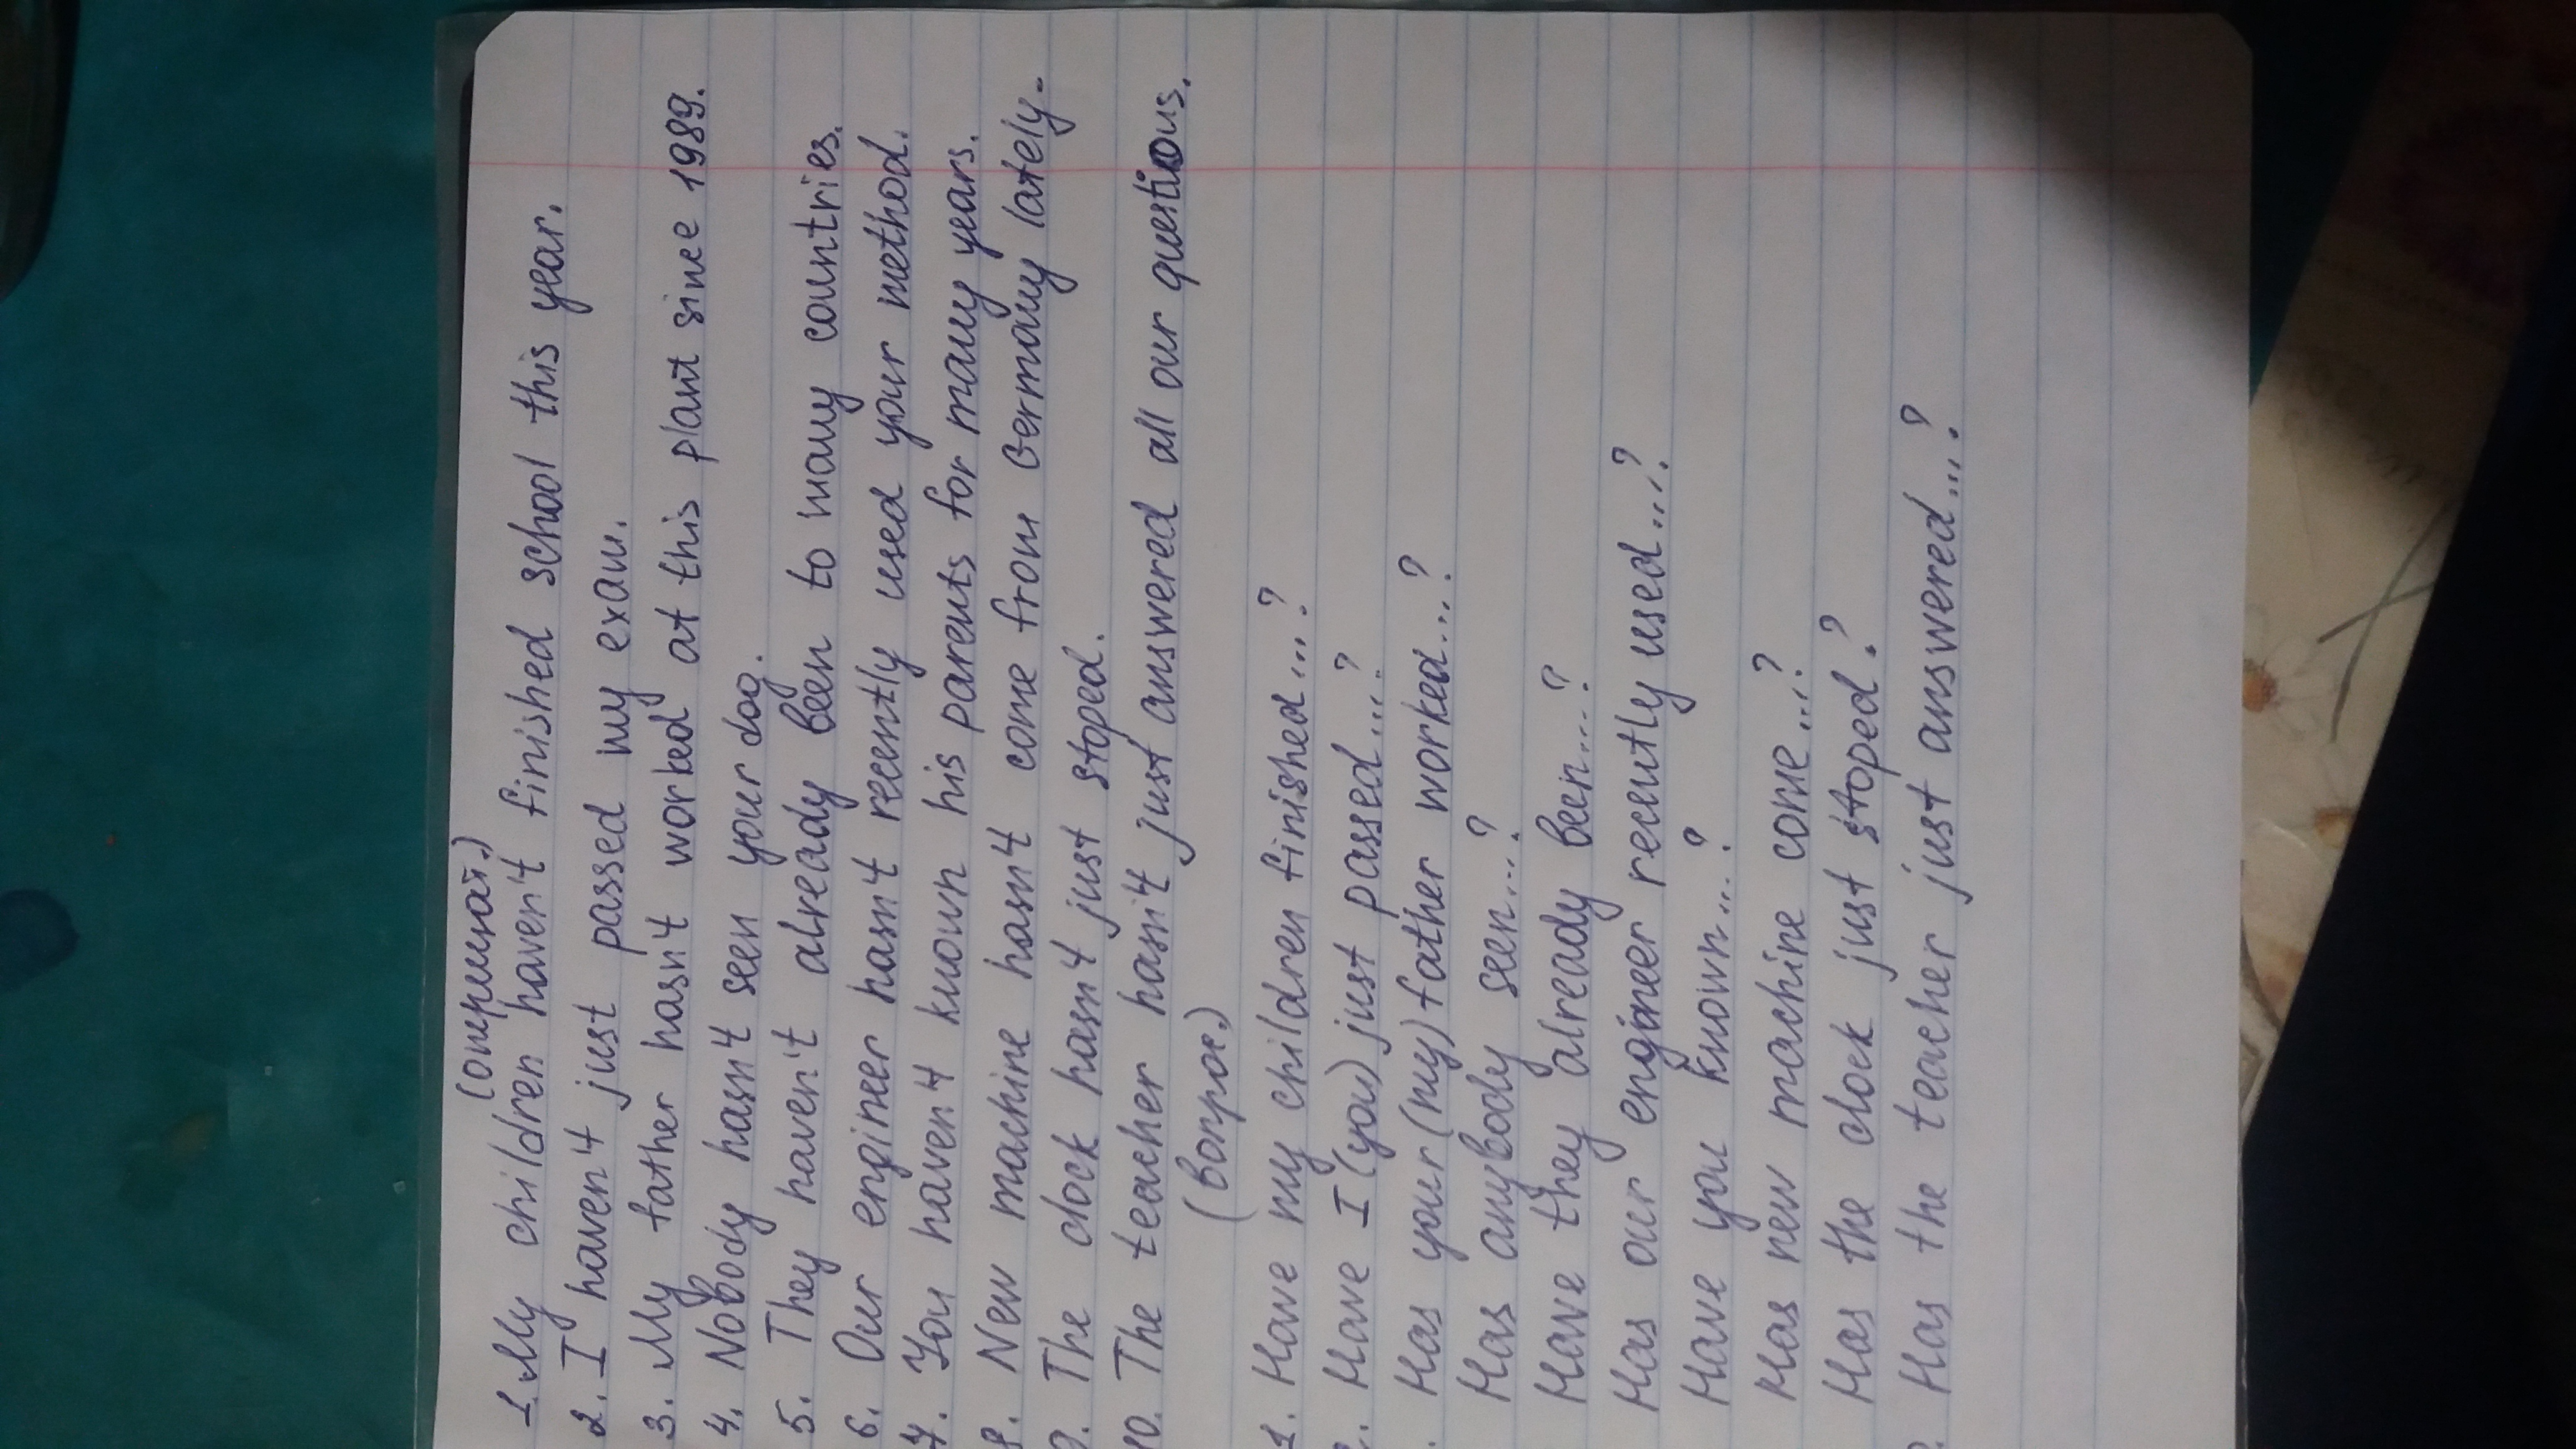 (отрицат.)
1. My children haven't finished school this year.
2. I haven't just passed my exam.
3. My father hasn't worked at this plant since 1989.
4. Nobody hasn't seen your dog.
5. They haven't already been to many countries.
6. Our engineer hasn't recently used your method.
7. You haven't known his parents for many years.
8. New machine hasn't come from Germany lately.
9. The clock hasn't just stoped.
10. The teacher hasn't just answered all our questions.
(вопрос.)
1. Have my children finished...?
2. Have I (you) just passed...?
. Has your (my) father worked...?
Has anybody seen...?
Have they already been...?
Has our engineer recently used...?
Have you known...?
Has new machine come...?
Has the clock just stoped?
. Has the teacher just answered...?